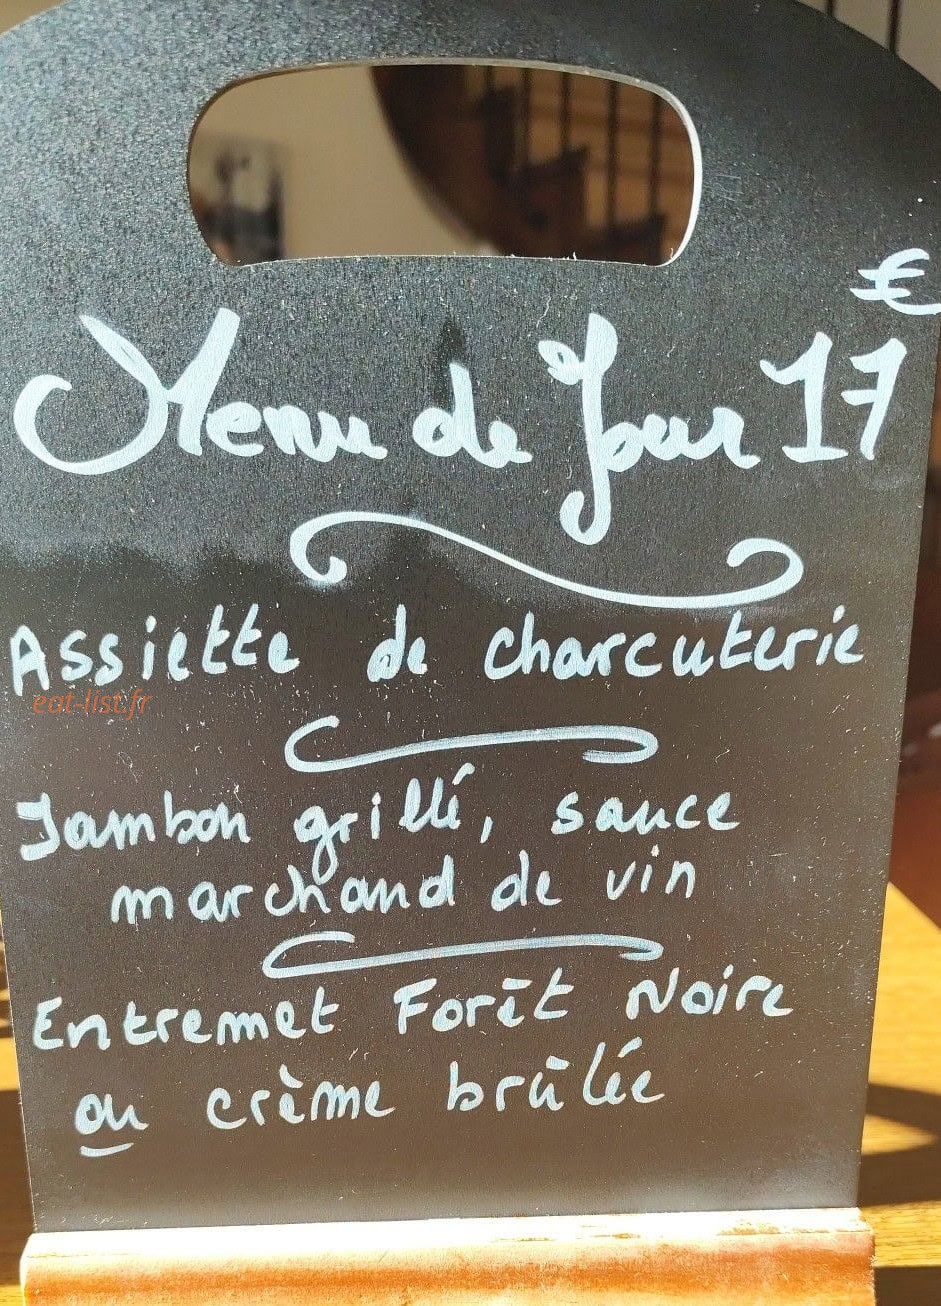 €
Menu de Jour 17
Assiette de charcuterie
eat-list.fr
Jambon grillé, sauce
marchand de vin
Entremet Forêt Noire
ou crème brûlée